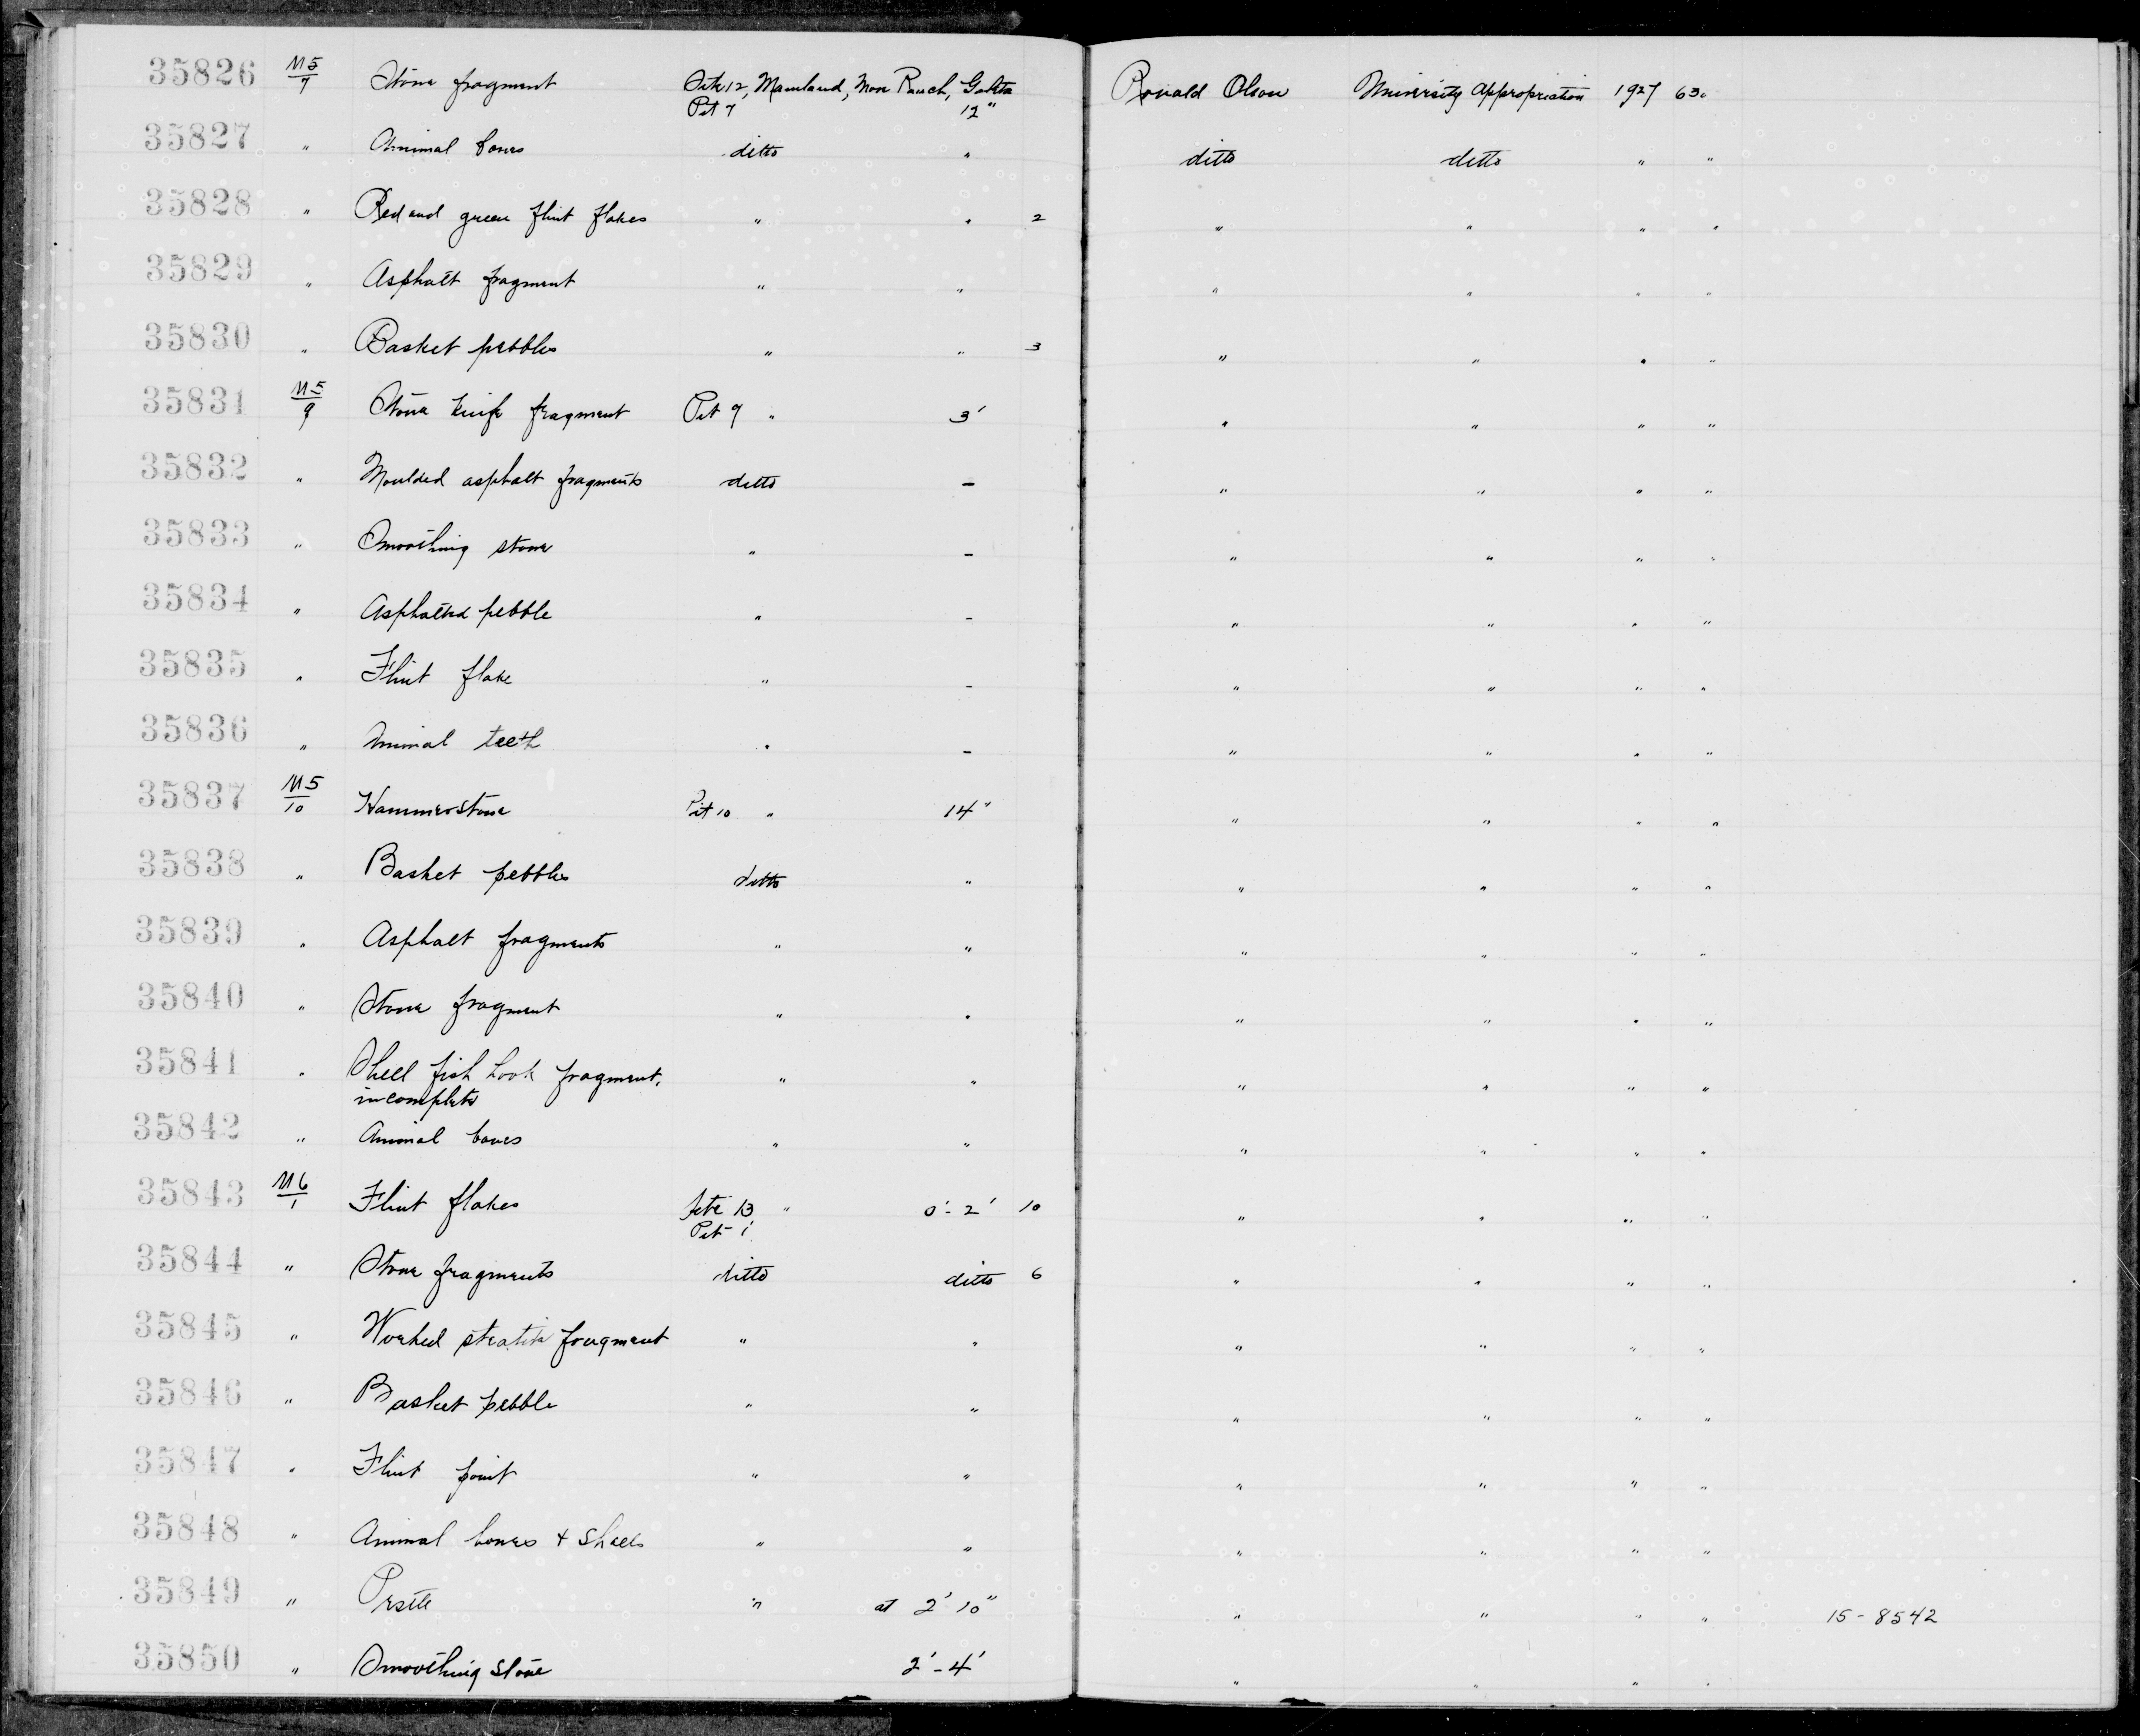 35826 M5/7 Stone fragment Site 12, Mainland, More Ranch, Goleta Ronald Olson University Appropriation 1927 630
Pit 7 12"
35827 " Animal bones ditto " ditto ditto " "
35828 " Red and green flint flakes " " 2 " " " "
35829 " Asphalt fragment " " " " " "
35830 " Basket pebbles " " 3 " " " "
35831 M5/9 Stone knife fragment Pit 9 " 3' " " " "
35832 " Moulded asphalt fragments ditto - " " " "
35833 " Smoothing stone " - " " " "
35834 " Asphalted pebble " - " " " "
35835 " Flint flake " - " " " "
35836 " Animal teeth " - " " " "
35837 M5/10 Hammerstone Pit 10 " 14" " " " "
35838 " Basket pebbles ditto " " " " "
35839 " Asphalt fragments " " " " " "
35840 " Stone fragment " " " " " "
35841 " Shell fish hook fragment, " " " " " "
incomplete
35842 " Animal bones " " " " " "
35843 M6/1 Flint flakes Site 13 " 0'-2' 10 " " " "
Pit 1
35844 " Stone fragments ditto ditto 6 " " " "
35845 " Worked steatite fragment " " " " " "
35846 " Basket pebble " " " " " "
35847 " Flint point " " " " " "
35848 " Animal bones + shells " " " " " "
35849 " Pestle " at 2' 10" " " " " 15-8542
35850 " Smoothing stone 2'-4' " " " "